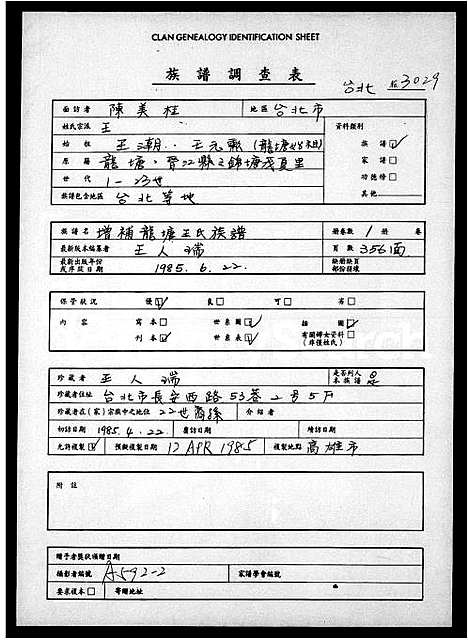 CLAN GENEALOGY IDENTIFICATION SHEET
族譜調查表
台北 3029
面訪者 陳美桂 地區 台北市
姓氏宗派 王 資料類別
始祖 王潮.. 王元 (龍塘始祖) 族譜☑
原籍 龍塘,晉江縣之錦塘茂夏里 家譜□
世代 1-23世 功德榜□
族譜包含地區 台北等地 其他
族譜名 增補龍塘王氏族譜 冊卷數 1 冊 卷
最新版本編纂者 王人瑞 頁數 356面
最新出版年份或序跋日期 1985.6.22. 缺冊缺頁部份損壞
保管狀況 優☑ 良□ 可□ 劣□
內容 寫本□ 世系圖☑ 插圖☑
刊本☑ 世系表☑ 有關婦女資料(非僅姓氏)□
珍藏者 王人瑞 是否列入本族譜 是
珍藏者住址 台北市長安西路53巷2号5F
珍藏者在(家)宗族中之地位 22世裔孫 介紹者
初訪日期 1985.4.22. 覆訪日期 續訪日期
允許複製☑ 預擬複製日期 17 APR 1985 複製地點 高雄市
附註
贈予者獎狀頒贈日期
攝影者編號 A592-2 家譜學會編號
要求複本□ 寄贈地址